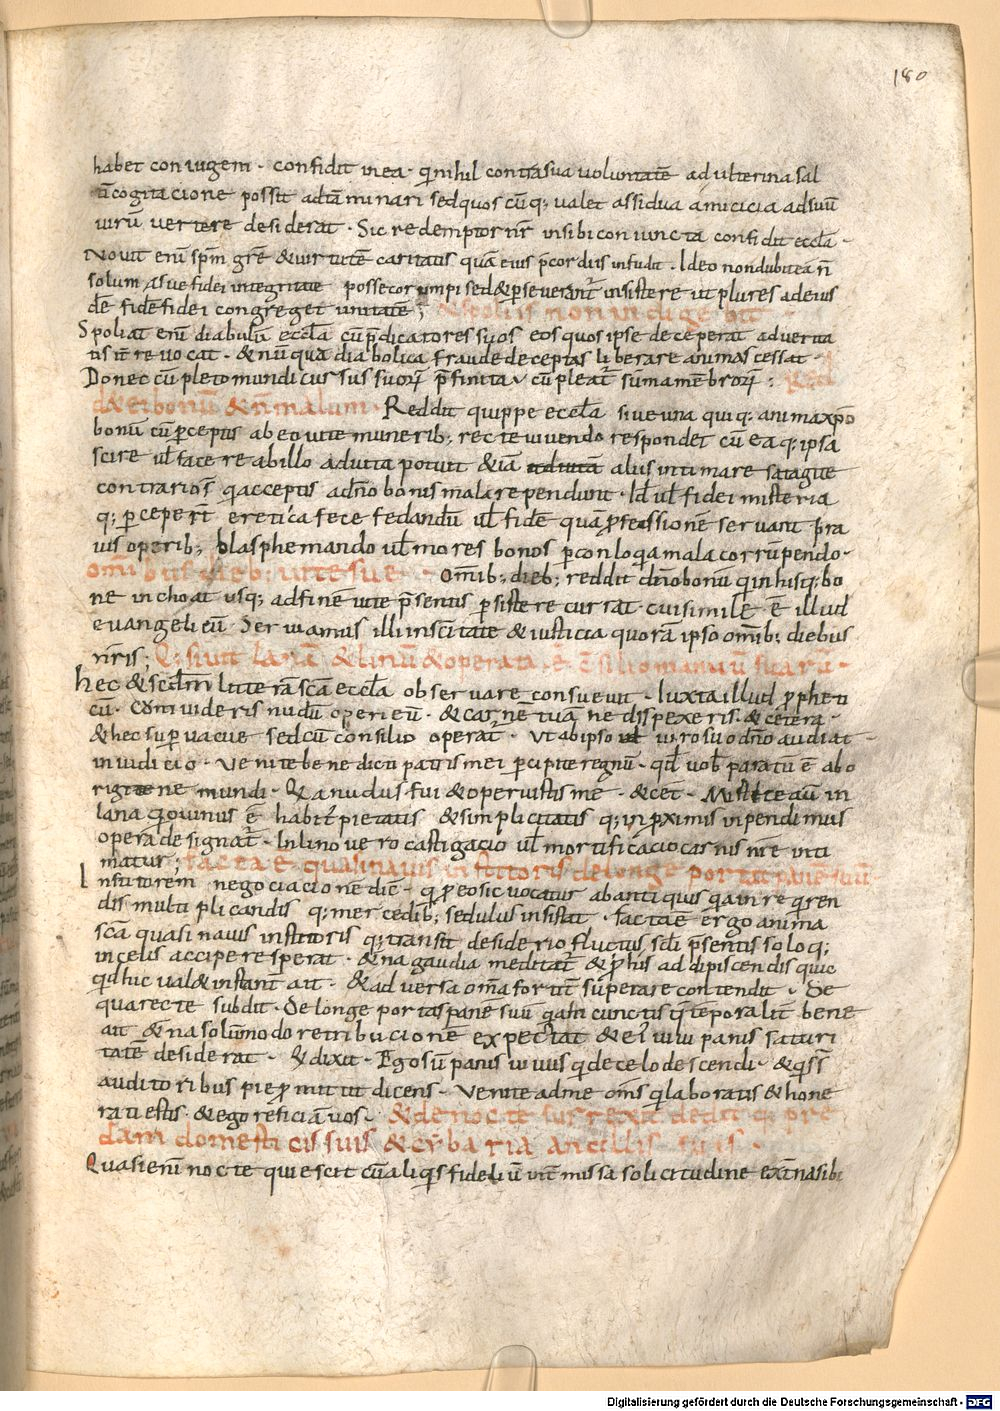 180
habet coniugem · confidit inea · qı̄nihil contrasua uoluntatē adulterina sal
tı̄cogitacione possit adtaminari sedquos cūq; ualet assidua amicicia adsuū
uirū uertere desiderat · Sic redemptor nr̄ insibi coniuncta confidit eccla ·
Nouit enī spm̄ gr̄e &uirtutē caritatis quā eius p̄cordiis infudit · Ideo nondubitea n̄
solum, asue fidei integritate possecorumpi sed&pseuerant̄ insistere ut plures adeius
dē fidē fidei congreget unitatē; &spoliis non indigebit ·
Spoliat enī diabulū eccla cūp̄dicatores suos eos quos ipse deceperat aduerita
tis it̄ reuocat · & nūquā diabolica fraude deceptas liberare animas cessat ·
Donec cūpleto mundi cursus suorū p̄finita cūpleat̄ sūmamēbrorū; Red
d&eibonū &n̄malum · Reddit quippe eccla siue una quiq; animaxpō
bonū cūpceptis abeo uite munerib; recte uiuendo respondet cū ea q; ipsa
scire ul̄ facere abillo adiuta potuit &iā aliis intimare satague
contrarios̄ qacceptis adn̄o bonis mala rependunt · Id ul̄ fidei misteria
q; pcepert̄ eretica fece fedandū ul̄ fidē quāp̄fessionē seruant pra
uis operib; blasphemando ul̄ mores bonos pconloqa mala corrūpendo ·
omībus dieb; uite sue · Omīb; dieb; reddit dn̄obonū qinhisq; bo
ne inchoat usq; adfinē uite p̄sentis psistere currat · cuisimile ē illud
euangelicū · Seruiamus illi insc̄itate &iusticia quorā ipso omīb; diebus
nr̄is; Q;siuit lanā &linū &operata ē c̄silio manuū suarū ·
hec &scdm̄ litterā sc̄a eccla obseruare consueuit · Iuxta illud propheti
cū · Cōm uideris nudū operi eū · &carnē tuā ne dispexeris · &cetera ·
&hec supuacue sedcū consilio operat̄ · Ut abipso uiro suo dn̄o audiat
iniudicio · Uenite benedicti patris mei pcipite regnū · qd̄ uob̄ paratū ē abo
rigine mundi · Qa nudus fui &operuistis me · &cet̄ · Mistice aū in
lana qouinus ē habit̄ pietatis &simplicitatis q; inpximis inpendimus
opera designat̄ · Inlino uero castigacio ul̄ mortificacio carnis nr̄e inti
matur; factaē quasinauis institoris delonge portat panē suū
Institorem negociacionē diē · q p eosic uocatur abanti quis qain re qren
dis multiplicandis q; mercedib; sedulus insistat · factaē ergo anima
sc̄a quasi nauis institoris q; transit desiderio fluctus sc̄li p̄sentis soloq;
incelis accipere sperat · &na gaudia meditat̄ &phis ad dipiscendis quic
qd huc ual& instant̄ ait · &aduersa om̄a fortit̄ supetare contendit · De
quarecte subdit · De longe portas panē suū qafn cunctis qtemporalit̄ bene
ait &na solūmodo retribucionē expectat &ei uiui panis saturi
tatē desiderat · Qdixit · Ego sū panis uiuus qdecelo descendi · &qs̄s̄
auditoribus piepmittit dicens · Uenite adme om̄s qlaboratis &hone
rati estis · &ego reficiā uos · &denocte surrexit dedit q; pre
dam domesticis suis &cybaria ancillis suis ·
Quasienī nocte quiescit cū aliqs fideliū int̄missa solicitudine ext̄nasibi
Digitalisierung gefördert durch die Deutsche Forschungsgemeinschaft - DFG